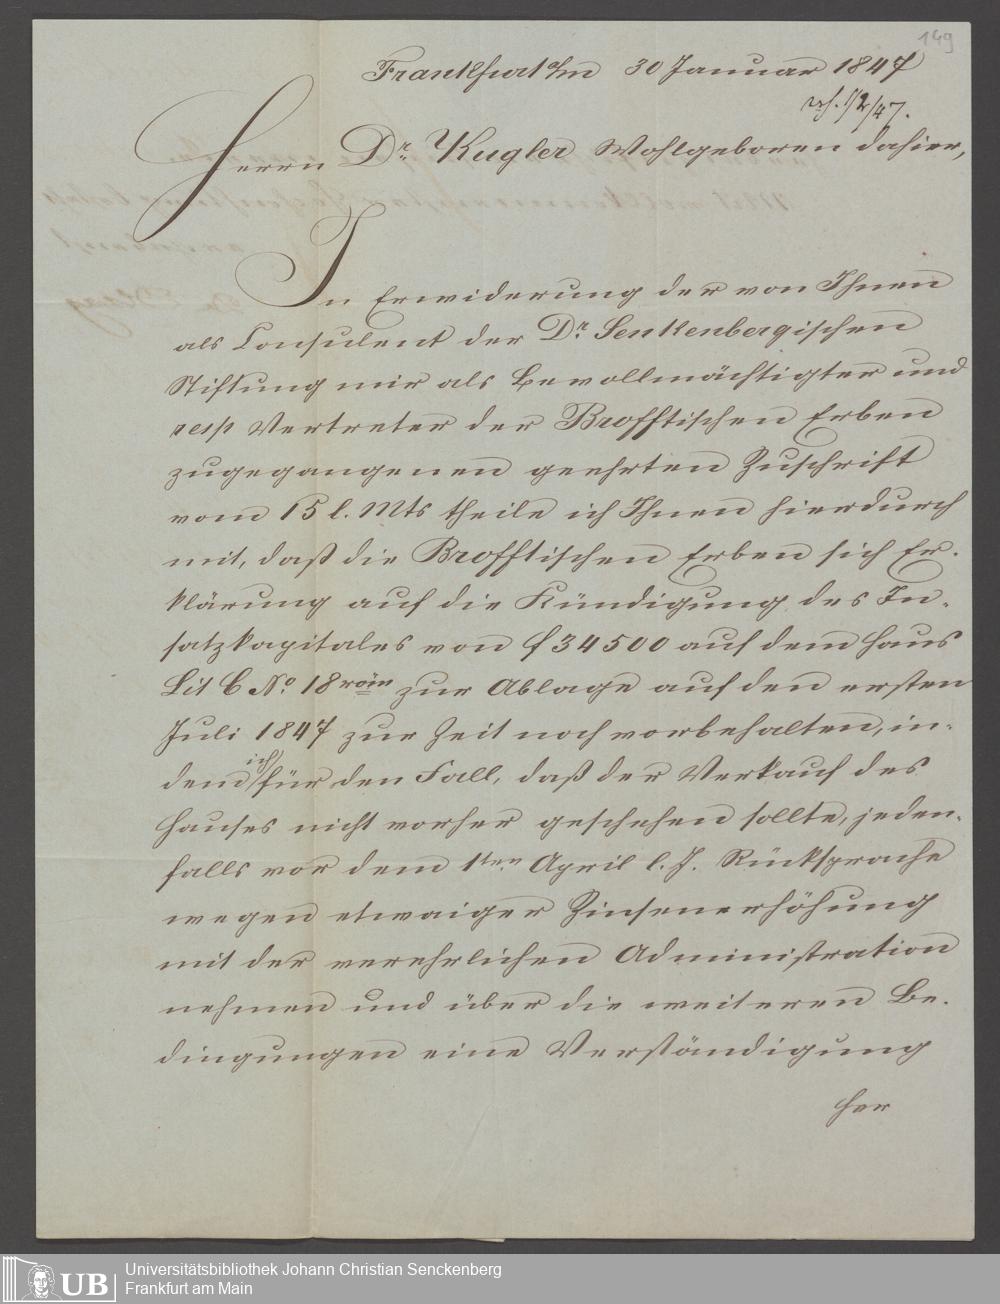 149
Frankfurt a/m 30 Januar 1847
1/2/47.
Herrn Dr. Kugler Wohlgeboren dahier,
In Erwiderung der von Ihnen
als Consulent der Dr. Senkenbergischen
Stiftung mir als Bevollmächtigter und
resp Vertreter der Brofftischen Erben
zugegangenen geehrten Zuschrift
vom 15 l. Mts theile ich Ihnen hierdurch
mit, daß die Brofftischen Erben sich Er-
klärung auf die Kündigung des In-
satzkapitales von f 34500 auf dem Haus
Lit C No. 18 röm zur Ablage auf den ersten
Juli 1847 zur Zeit noch vorbehalten, in-
dem ich für den Fall, daß der Verkauf des
Hauses nicht vorher geschehen sollte, jeden-
falls vor dem 1ten April l. J. Rücksprache
wegen etwaiger Zinsenerhöhung
mit der verehrlichen Administration
nehmen und über die weiteren Be-
dingungen eine Verständigung
her
UB Universitätsbibliothek Johann Christian Senckenberg
Frankfurt am Main